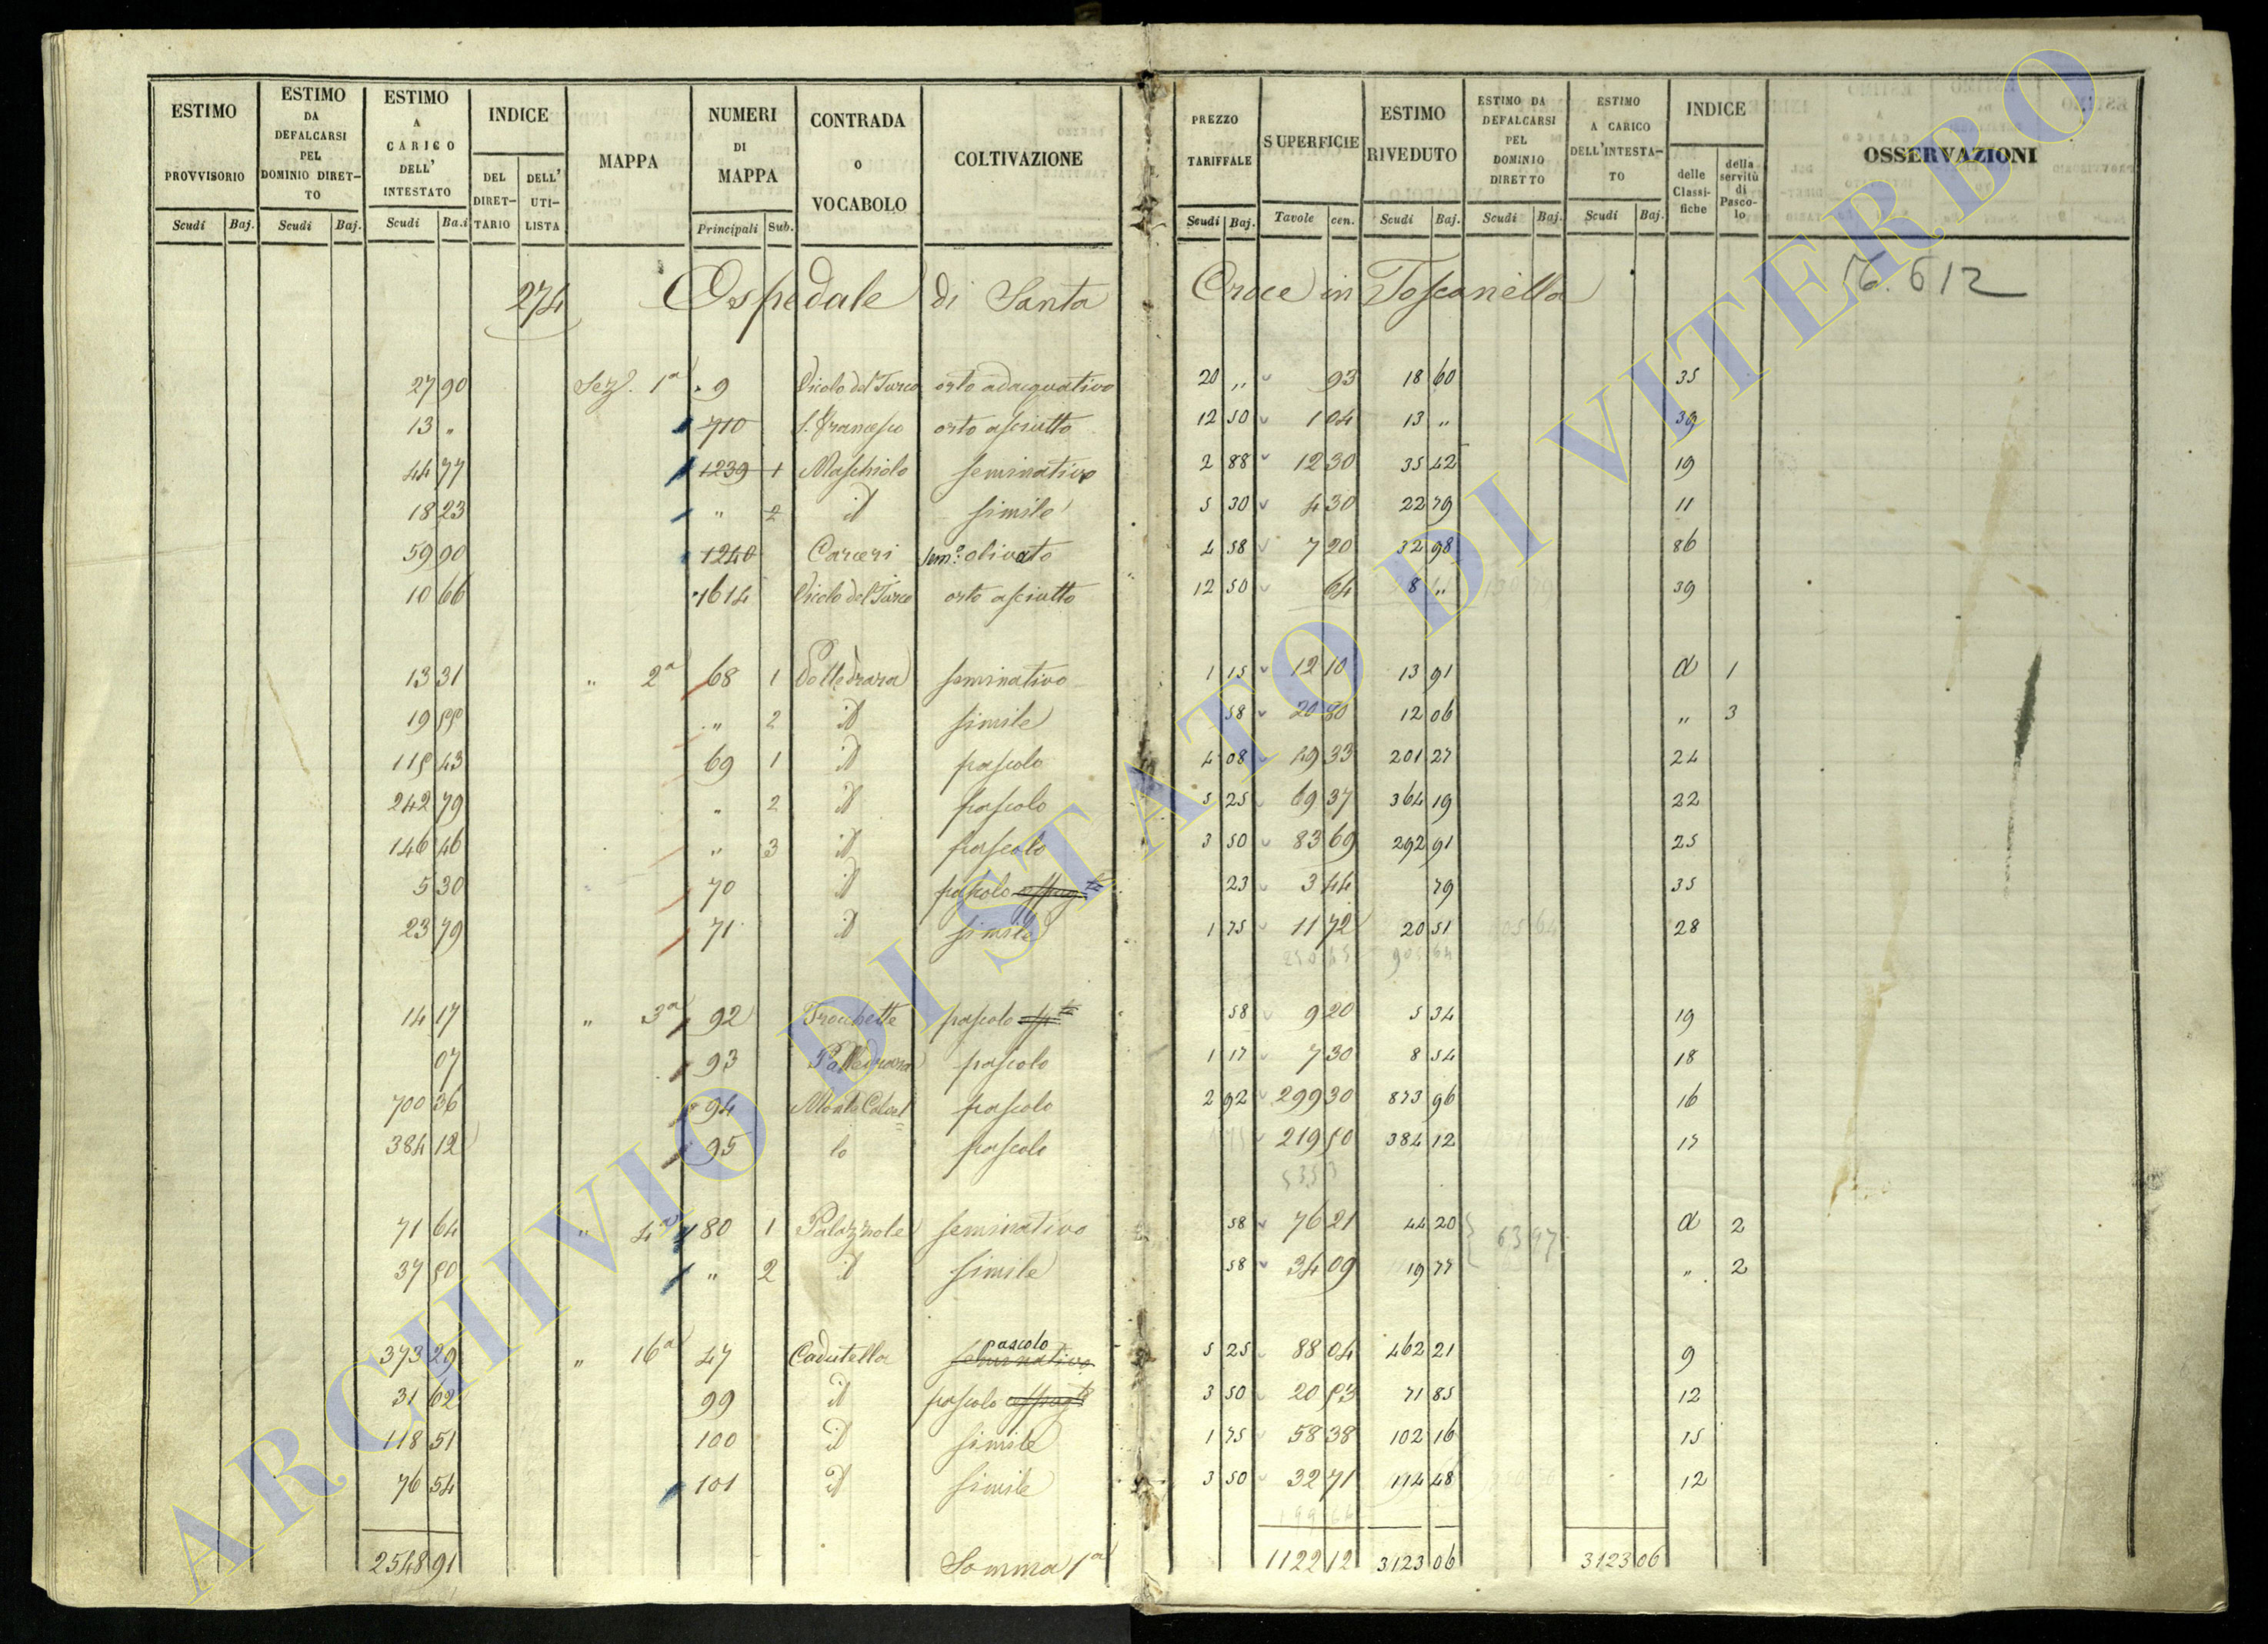 ESTIMO PROVVISORIO ESTIMO DA DEFALCARSI PEL DOMINIO DIRET-TO ESTIMO A CARICO DELL' INTESTATO INDICE DEL DIRET-TARIO DELL' UTI-LISTA MAPPA NUMERI DI MAPPA CONTRADA o VOCABOLO COLTIVAZIONE PREZZO TARIFFALE SUPERFICIE ESTIMO RIVEDUTO ESTIMO DA DEFALCARSI PEL DOMINIO DIRETTO ESTIMO A CARICO DELL'INTESTA-TO INDICE delle Classi-fiche della servitù di Pasco-lo OSSERVAZIONI
Scudi Baj. Scudi Baj. Scudi Ba.i Principali Sub. Scudi Baj. Tavole cen. Scudi Baj. Scudi Baj. Scudi Baj.
274 Ospedale di Santa Croce in Toscanella 612
27 90 Sez. 1a 9 Vicolo del Turco orto adacquativo 20 " 93 18 60 35
13 " 710 S. Francesco orto asciutto 12 50 1 04 13 " 39
44 77 1239 1 Maschiolo seminativo 2 88 12 30 35 42 19
18 23 " 2 id simile 5 30 4 30 22 79 11
59 90 1240 Carceri sem.o olivato 4 58 7 20 32 98 86
10 66 1614 Vicolo del Turco orto asciutto 12 50 64 8 " 39
13 31 " 2a 68 1 Polledrara seminativo 1 15 12 10 13 91 a 1
19 " 2 id simile 58 20 80 12 06 " 3
115 43 69 1 id pascolo 4 08 49 33 201 27 24
242 79 " 2 id pascolo 5 25 69 37 364 19 22
146 46 " 3 id pascolo 3 50 83 69 292 91 25
5 30 70 id pascolo 23 3 44 79 35
23 79 71 id simile 1 75 11 72 20 51 28
905 64
14 17 " 3a 92 Trochette pascolo 58 9 20 5 34 19
07 93 Polledrara pascolo 1 17 7 30 8 54 18
700 36 94 pascolo 2 92 299 30 873 96 16
384 12 95 lo pascolo 219 50 384 12 17
71 64 " 4a 80 1 Palazzole seminativo 58 76 21 44 20 63 97 a 2
37 50 " 2 id simile 58 34 09 19 77 " 2
373 29 " 16a 47 Cadutella seminativo pascolo 5 25 88 04 462 21 9
31 62 99 id pascolo 3 50 20 53 71 85 12
118 51 100 id simile 1 75 58 38 102 16 15
76 54 101 id simile 3 50 32 71 114 48 12
2548 91 Somma 1a 1122 12 3123 06 3123 06
ARCHIVIO DI STATO DI VITERBO